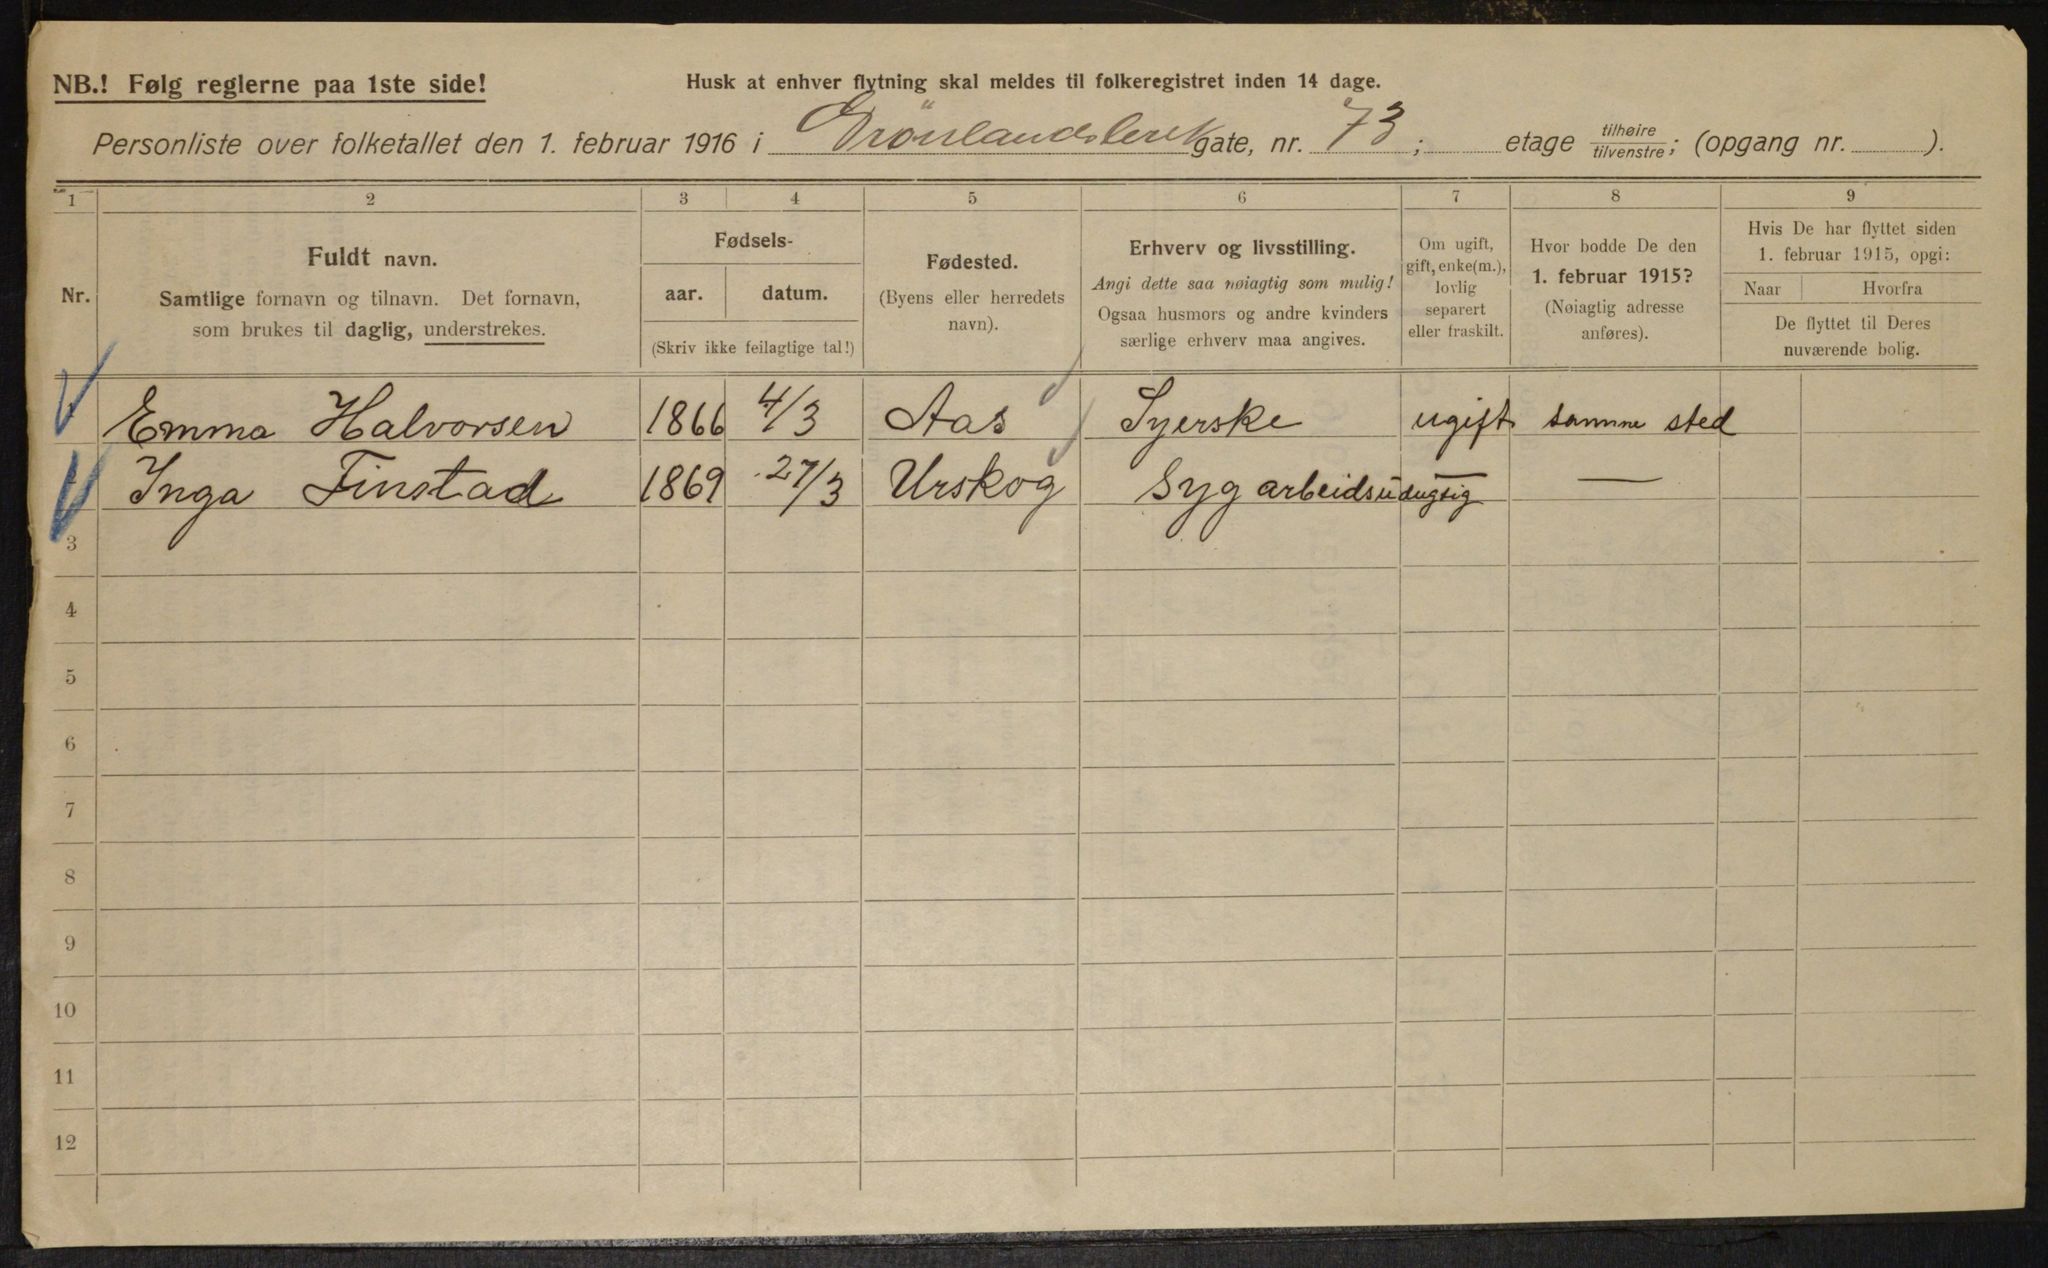 NB.! Følg reglerne paa 1ste side!
Husk at enhver flytning skal meldes til folkeregistret inden 14 dage.
Personliste over folketallet den 1. februar 1916 i Grönlandsleret gate, nr. 73; etage tilhøire/tilvenstre; (opgang nr. ).
1 2 3 4 5 6 7 8 9
Nr.
Fuldt navn.
Samtlige fornavn og tilnavn. Det fornavn,
som brukes til daglig, understrekes.
Fødsels-
aar. datum.
(Skriv ikke feilagtige tal!)
Fødested.
(Byens eller herredets
navn).
Erhverv og livsstilling.
Angi dette saa nøiagtig som mulig!
Ogsaa husmors og andre kvinders
særlige erhverv maa angives.
Om ugift,
gift, enke(m.),
lovlig
separert
eller fraskilt.
Hvor bodde De den
1. februar 1915?
(Nøiagtig adresse
anføres).
Hvis De har flyttet siden
1. februar 1915, opgi:
Naar Hvorfra
De flyttet til Deres
nuværende bolig.
Emma Halvorsen 1866 4/3 Aas Syerske ugift samme sted
Inga Finstad 1869 27/3 Urskog Syg arbeidsudugtig — —
3
4
5
6
7
8
9
10
11
12